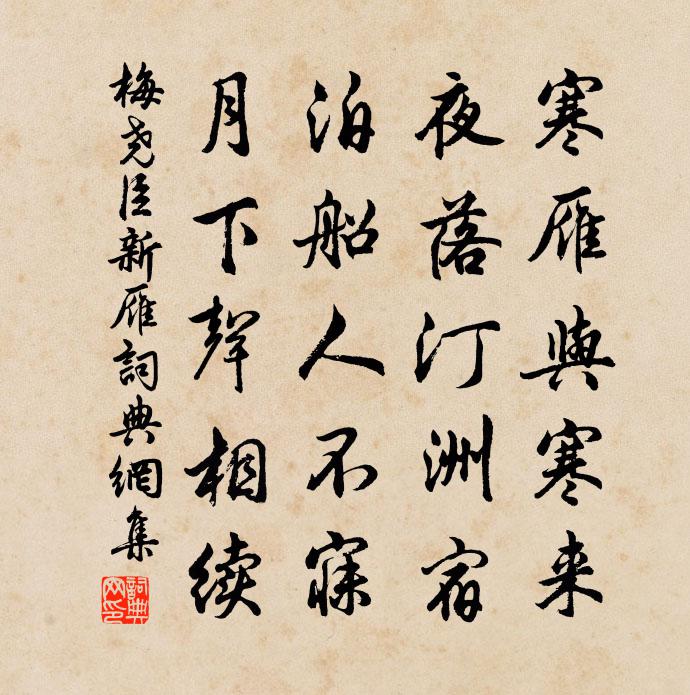 寒雁與寒来
夜落汀洲宿
泊船人不寐
月下聲相续
梅尧臣新雁詞典網集
詞典
网印